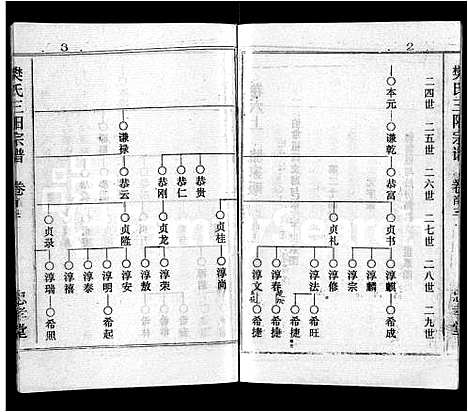 2
樊氏三阳宗谱
二四世 二五世 二六世 二七世 二八世 二九世
○本元 ○谦乾 ○恭富 ○贞书 ○淳麒 ○希成
○淳麟
○淳宗
○贞礼 ○淳修
○淳法 ○希旺
○淳春 ○希捷
○淳文 ○希捷
3
樊氏三阳宗谱
○贞桂 ○淳尚
○恭贵
○恭仁
○恭刚 ○贞龙 ○淳荣
○淳敖
○谦禄 ○恭云 ○贞隆 ○淳安
○淳明 ○希起
○淳泰
○淳禧
○贞录 ○淳瑞 ○希照